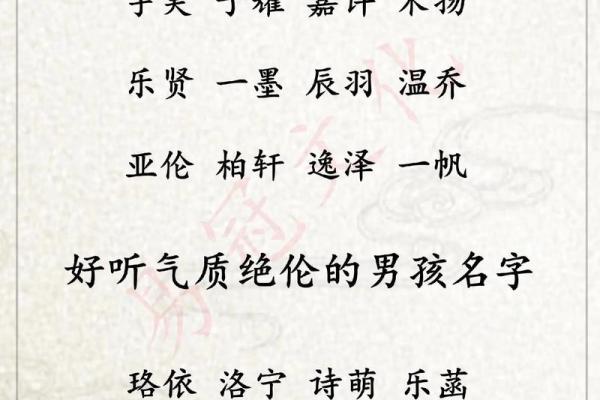 乐贤 一墨 辰羽 温乔
亚伦 柏轩 逸泽 一帆
好听气质绝伦的男孩名字
珞依 洛宁 诗萌 乐菡